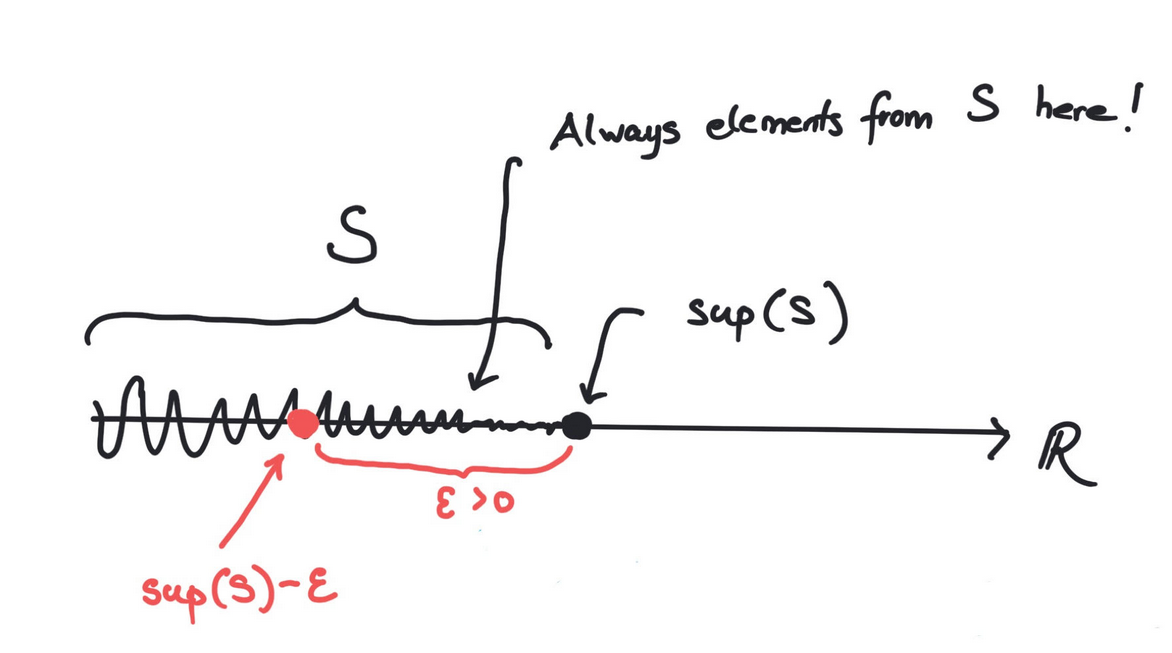 Always elements from S here!
S
sup(S)
ℝ
ε>0
sup(S)-ε